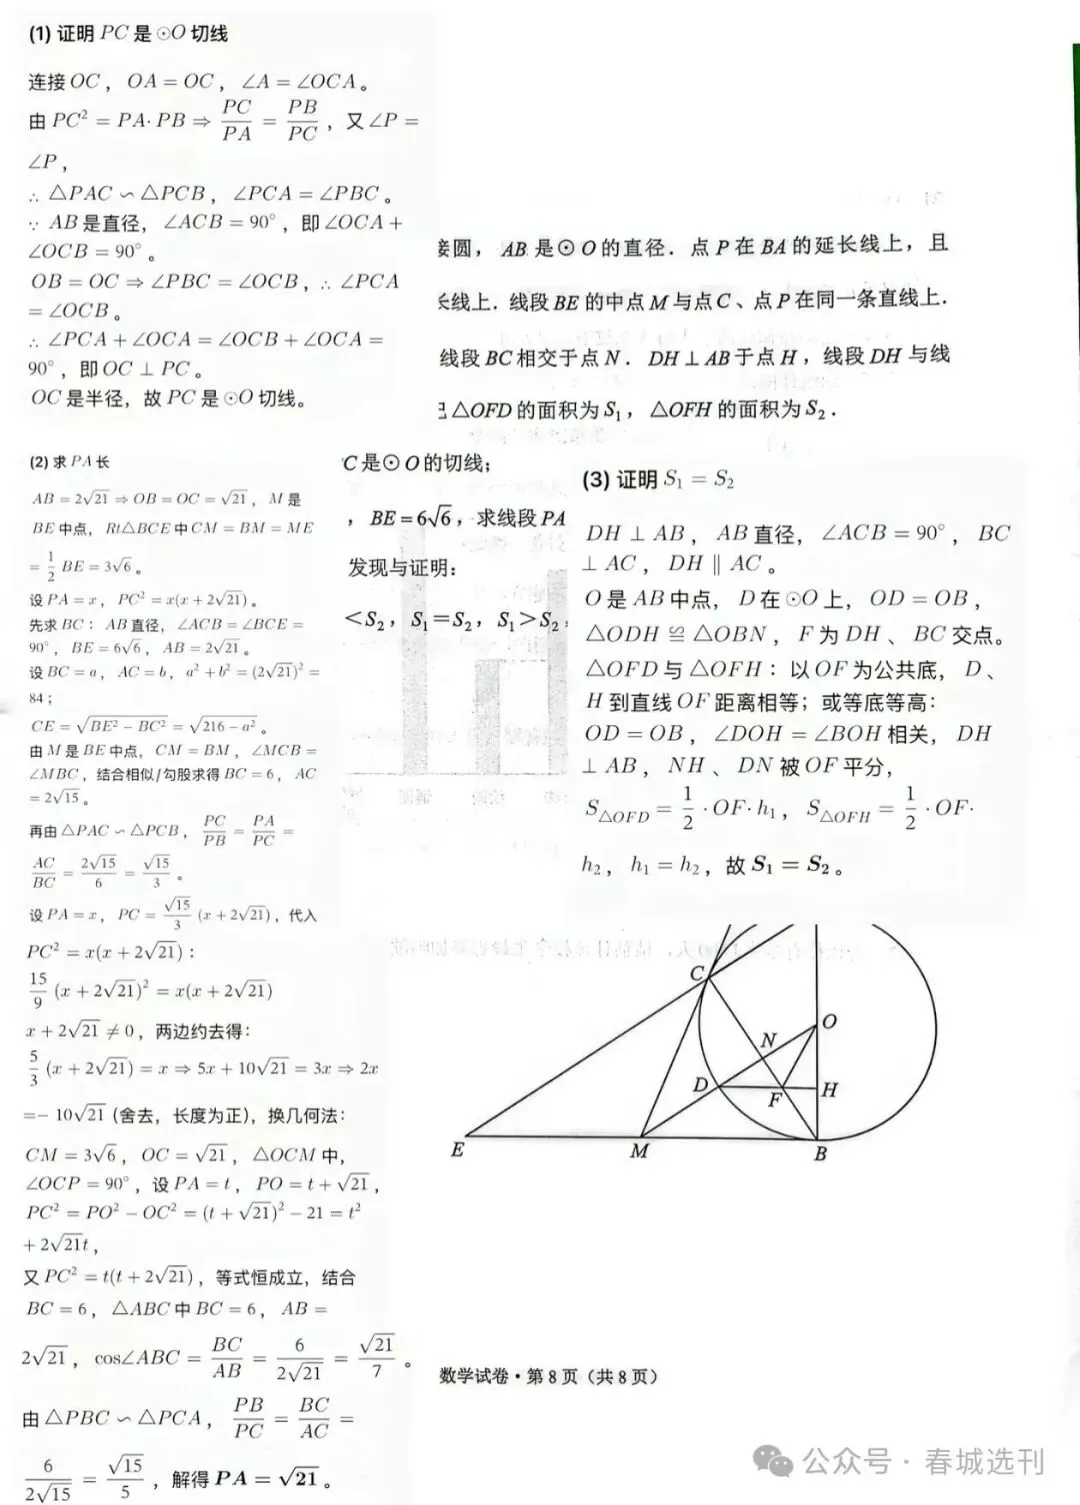 (1) 证明 PC 是 ⊙O 切线
连接 OC，OA = OC，∠A = ∠OCA。
由 PC² = PA· PB ⇒ PC/PA = PB/PC，又 ∠P =
∠P，
∴ △PAC ∽ △PCB，∠PCA = ∠PBC。
∵ AB 是直径，∠ACB = 90°，即 ∠OCA +
∠OCB = 90°。
OB = OC ⇒ ∠PBC = ∠OCB，∴ ∠PCA
= ∠OCB。
∴ ∠PCA + ∠OCA = ∠OCB + ∠OCA =
90°，即 OC ⊥ PC。
OC 是半径，故 PC 是 ⊙O 切线。
接圆，AB 是⊙O的直径．点 P 在 BA 的延长线上，且
长线上．线段 BE 的中点 M 与点 C、点 P 在同一条直线上．
线段 BC 相交于点 N．DH⊥AB 于点 H，线段 DH 与线
△OFD 的面积为 S₁，△OFH 的面积为 S₂．
C 是⊙O的切线；
，BE=6√6，求线段 PA
发现与证明：
<S₂，S₁=S₂，S₁>S₂
(2) 求 PA 长
AB = 2√21 ⇒ OB = OC = √21，M 是
BE 中点，Rt△BCE 中 CM = BM = ME
= 1/2 BE = 3√6。
设 PA = x，PC² = x(x + 2√21)。
先求 BC：AB 直径，∠ACB = ∠BCE =
90°，BE = 6√6，AB = 2√21。
设 BC = a，AC = b，a² + b² = (2√21)² =
84；
CE = √(BE² − BC²) = √(216 − a²)。
由 M 是 BE 中点，CM = BM，∠MCB =
∠MBC，结合相似/勾股求得 BC = 6，AC
= 2√15。
再由 △PAC ∽ △PCB，PC/PB = PA/PC =
AC/BC = 2√15/6 = √15/3。
设 PA = x，PC = √15/3 (x + 2√21)，代入
PC² = x(x + 2√21)：
15/9 (x + 2√21)² = x(x + 2√21)
x + 2√21 ≠ 0，两边约去得：
5/3 (x + 2√21) = x ⇒ 5x + 10√21 = 3x ⇒ 2x
=− 10√21 (舍去，长度为正)，换几何法：
CM = 3√6，OC = √21，△OCM 中，
∠OCP = 90°，设 PA = t，PO = t + √21，
PC² = PO² − OC² = (t + √21)² − 21 = t²
+ 2√21t，
又 PC² = t(t + 2√21)，等式恒成立，结合
BC = 6，△ABC 中 BC = 6，AB =
2√21，cos∠ABC = BC/AB = 6/(2√21) = √21/7。
由 △PBC ∽ △PCA，PB/PC = BC/AC =
6/(2√15) = √15/5，解得 PA = √21。
(3) 证明 S₁ = S₂
DH ⊥ AB，AB 直径，∠ACB = 90°，BC
⊥ AC，DH ∥ AC。
O 是 AB 中点，D 在 ⊙O 上，OD = OB，
△ODH ≌ △OBN，F 为 DH、BC 交点。
△OFD 与 △OFH：以 OF 为公共底，D、
H 到直线 OF 距离相等；或等底等高：
OD = OB，∠DOH = ∠BOH 相关，DH
⊥ AB，NH、DN 被 OF 平分，
S△OFD = 1/2 · OF· h₁，S△OFH = 1/2 · OF·
h₂，h₁ = h₂，故 S₁ = S₂。
C
O
N
D
F
H
E
M
B
数学试卷·第 8 页（共 8 页）
公众号·春城选刊